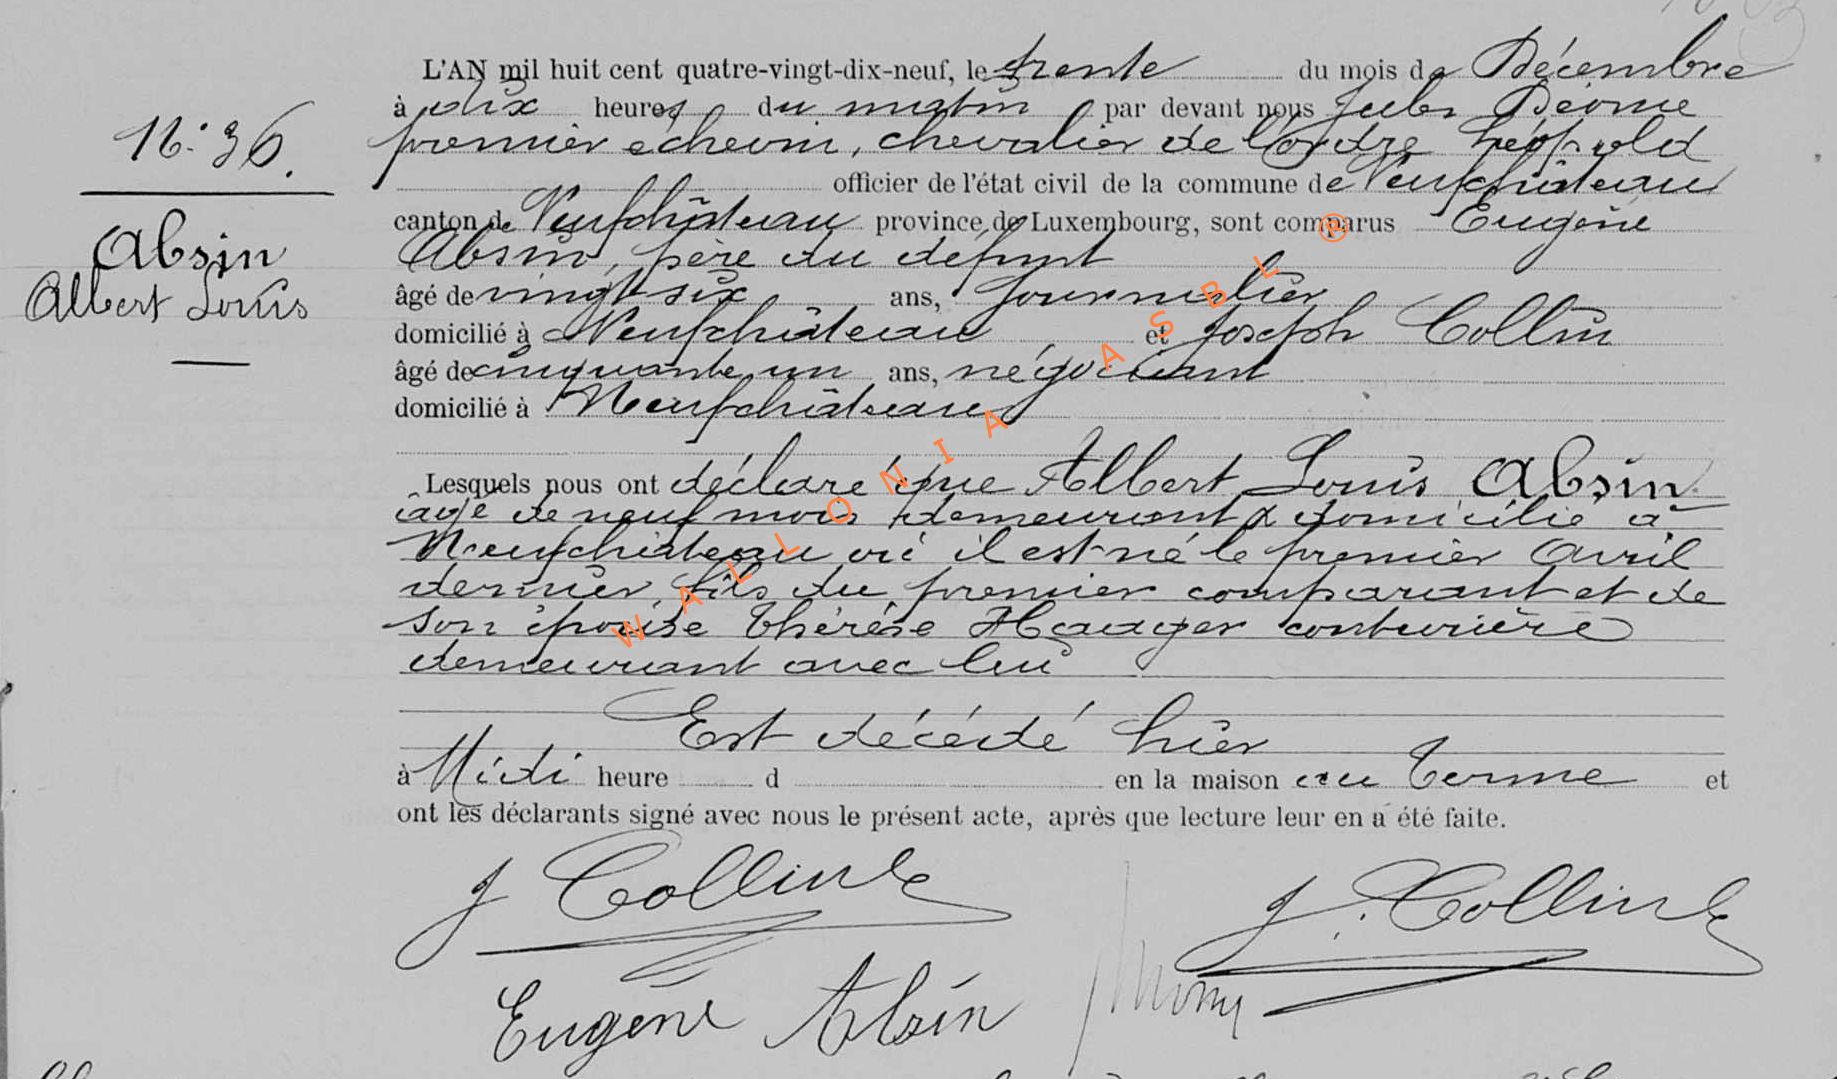 L'AN mil huit cent quatre-vingt-dix-neuf, le trente du mois de Décembre
à dix heures du matin par devant nous Jules
premier échevin, chevalier de l'ordre Léopold
officier de l'état civil de la commune de Neufchâteau
canton de Neufchâteau province de Luxembourg, sont comparus Eugène
Absin, père du défunt
âgé de vingt six ans, journalier
domicilié à Neufchâteau et Joseph Collin
âgé de cinquante un ans, négociant
domicilié à Neufchâteau
N: 36.
Absin
Albert Louis
Lesquels nous ont déclaré que Albert Louis Absin
âgé de neuf mois demeurant & domicilié à
Neufchâteau où il est né le premier Avril
dernier, fils du premier comparant et de
son épouse Thérèse couturière
demeurant avec lui
Est décédé hier
à Midi heure d en la maison au Terme et
ont les déclarants signé avec nous le présent acte, après que lecture leur en a été faite.
J Collin J. Collin
Eugène Absin
WALLONIA ASBL ®